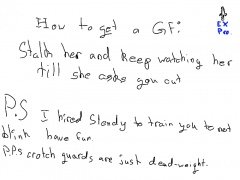 How to get a GF:
EX
Pro
Stalk her and keep watching her
till she asks you out
P.S I hired Slendy to train you to not
blink have fun.
P.P.S crotch guards are just dead-weight.